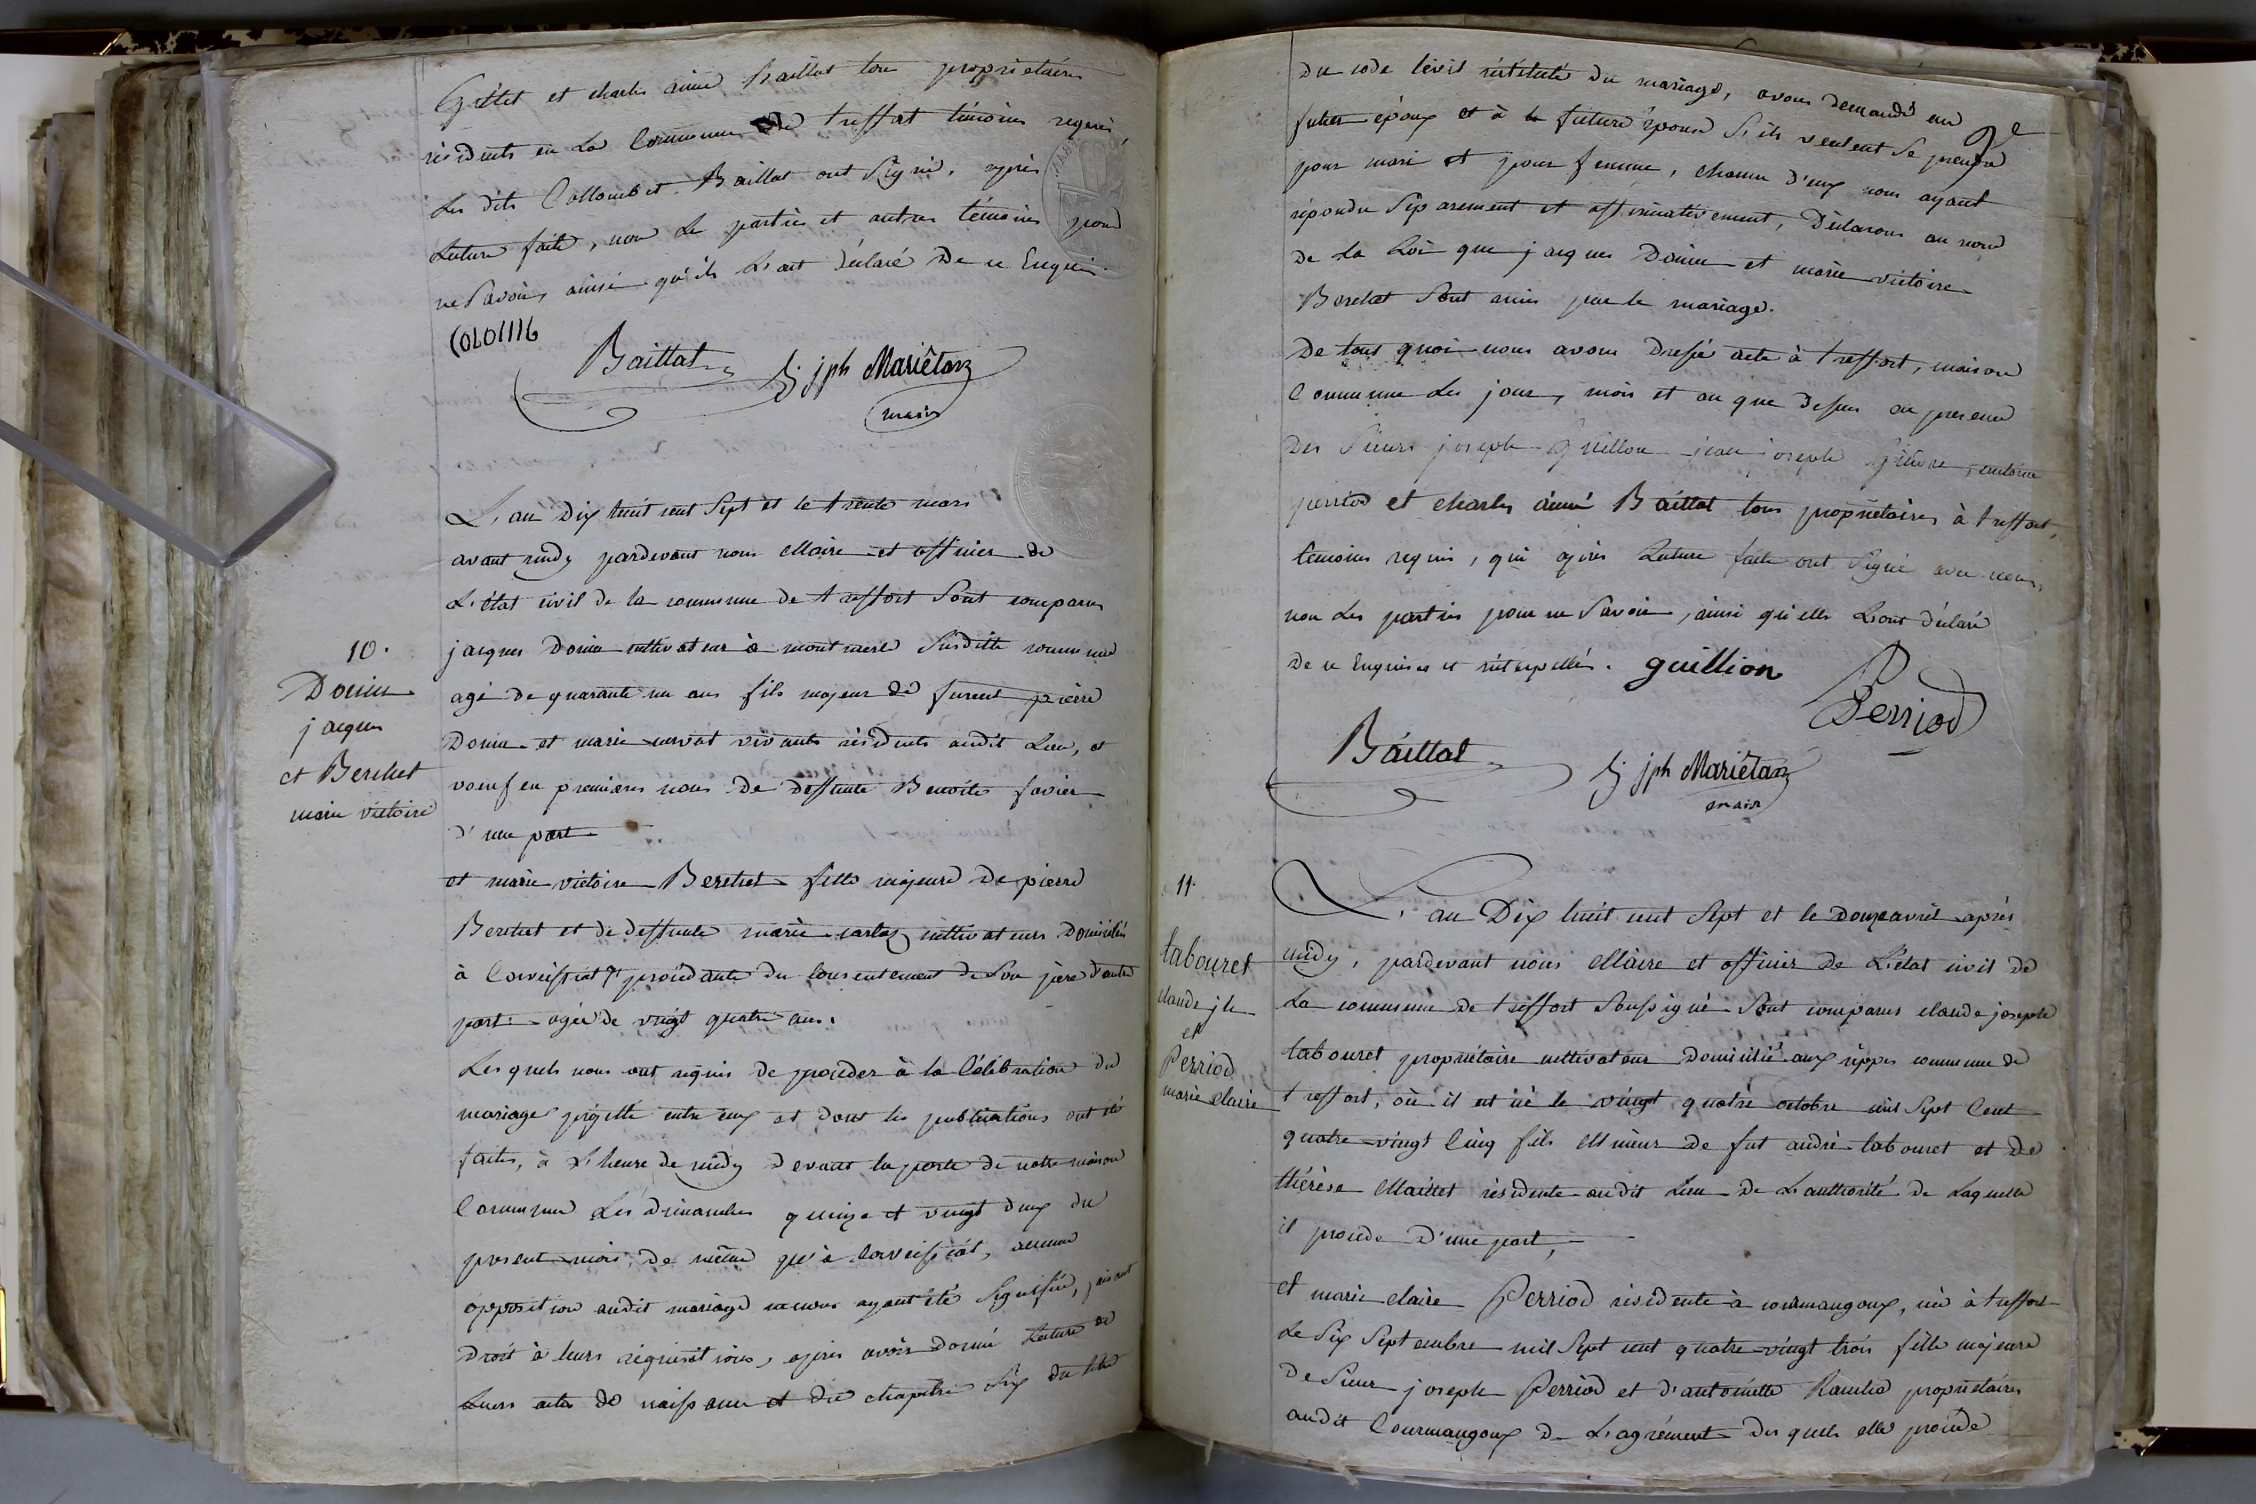 Gillet et charles aimé Baillat tous propriétaires
résidents en la Commune de treffort témoins requis,
Les dits Collombet Baillat ont Signé, après
Lecture faite, non Les parties et autres témoins pour
ne Savoir, ainsi qu'ils L'ont déclaré De ce Enquis.
Baillat
jph Mariêtan
maire
L'an Dix huit cent Sept et le trente mars
avant midy pardevant nous Maire et officier de
L'état civil de la commune de treffort Sont comparus
jacques Donin cultivateur à montmerle Susditte commune
agé de quarante un ans fils majeur de furent pierre
Donin et marie vivants résidents audit Lieu, et
voeuf en premieres noces de deffunte Benoite favier
d'une part
et marie victoire Berchet fille majeure de pierre
Berchet et de deffunte marie cultivateurs Domiciliés
à Corveissiat procédante du Consentement de Son père d'autre
part. agée de vingt quatre ans.
Lesquels nous ont requis de procéder à la Célébration du
mariage projetté entre eux et dont les publications ont été
faites, à L'heure de midy devant la porte de notre maison
Commune Les dimanches quinze et vingt deux du
present mois de même qu'à Corveissiat, aucune
opposition audit mariage ne nous ayant été Signifiée, faisant
Droit à leurs requisitions, après avoir donné Lecture de
Leurs actes de naissance et du chapitre Six du titre
10.
Donin
jacques
et Berchet
marie victoire
2e
Du code Civil intitulé du mariage, avons demandé au
futur époux et à la future épouse S'ils veulent Se prendre
pour mari et pour femme, chacun d'eux nous ayant
répondu Séparement et affirmativement, Déclarons au nom
De La Loi que jacques Donin et marie victoire
Berchet Sont unis par le mariage.
De tout quoi nous avons Dressé acte à treffort, maison
Commune Les jour, mois et an que dessus en presence
Des Sieurs joseph Guillon jean joseph antoine
perriod et charles aimé Baillat tous propriétaires à treffort,
témoins requis, qui après Lecture faite ont Signé avec nous,
non Les parties pour ne Savoir, ainsi qu'elles L'ont déclaré
De ce Enquises et interpellés. guillion
Perriod
Baillat
jph Mariêtan
maire
11.
L'an Dix huit cent Sept et le Douze avril après
midy, pardevant nous Maire et officier de L'état civil de
La commune de treffort Soussigné Sont comparus claude joseph
tabouret propriétaire cultivateur Domicilié aux rippes commune de
treffort, où il est né le vingt quatre octobre mil Sept Cent
quatre-vingt Cinq fils Mineur de fut andré tabouret et de
thérèse Maillet résidente audit Lieu de L'authorité de Laquelle
il procède D'une part,
et marie claire Perriod résidente à courmangoux, née à treffort
Le Six Septembre mil Sept cent quatre-vingt trois fille majeure
De Sieur joseph Perriod et d'antoinette propriétaires
audit Courmangoux De L'agrément des quels elle procède
tabouret
claude jh
et
Perriod
marie claire